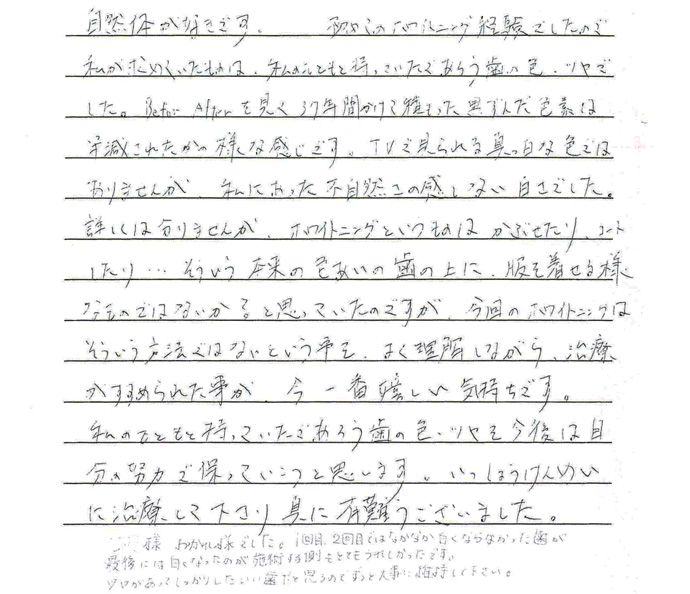 自然体が好きです。 初めてのホワイトニング経験でしたので
私が求めていたものは、私がもともと持っていたであろう歯の色・ツヤで
した。Before Afterを見て37年間かけて積もった黒ずんだ色素は
半減されたかの様な感じです。TVで見られる真っ白な色では
ありませんが、私にあった不自然さの感じない白さでした。
詳しくは分りませんが、ホワイトニングというものはかぶせたり、コート
したり…そういう本来の色あいの歯の上に、服を着せる様
なものではないかなと思っていたのですが、今回のホワイトニングは
そういう方法ではないという事を、よく理解しながら、治療
がすすめられた事が、今一番嬉しい気持ちです。
私のもともと持っていたであろう歯の色・ツヤを今後は自
分の努力で保っていこうと思います。いっしょうけんめい
に治療して下さり真に有難うございました。
様 おつかれ様でした。1回目、2回目ではなかなか白くならなかった歯が
最後には白くなったのが施術する側もとてもうれしかったです。
ツヤがあってしっかりしたいい歯だと思うのでずっと大事に維持して下さい。